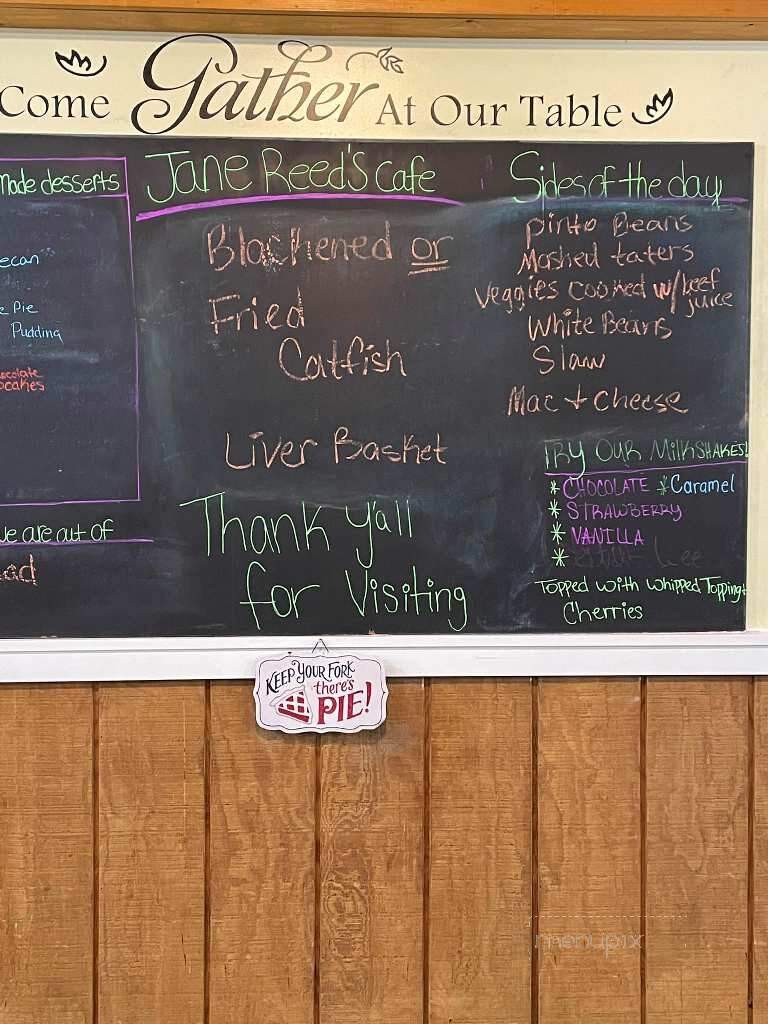 Come Gather At Our Table
Made desserts
ecan
e Pie
Pudding
ocolate
pcakes
we are out of
Jane Reed's Cafe
Blackened or
Fried
Catfish
Liver Basket
Thank Y'all
for Visiting
Sides of the day
Pinto Beans
Mashed taters
Veggies cooked w/ beef
juice
White Beans
Slaw
Mac + Cheese
Try Our Milkshakes!
* Chocolate * Caramel
* Strawberry
* Vanilla
*
Topped with Whipped Topping +
Cherries
Keep Your Fork
there's
PIE!
menupix